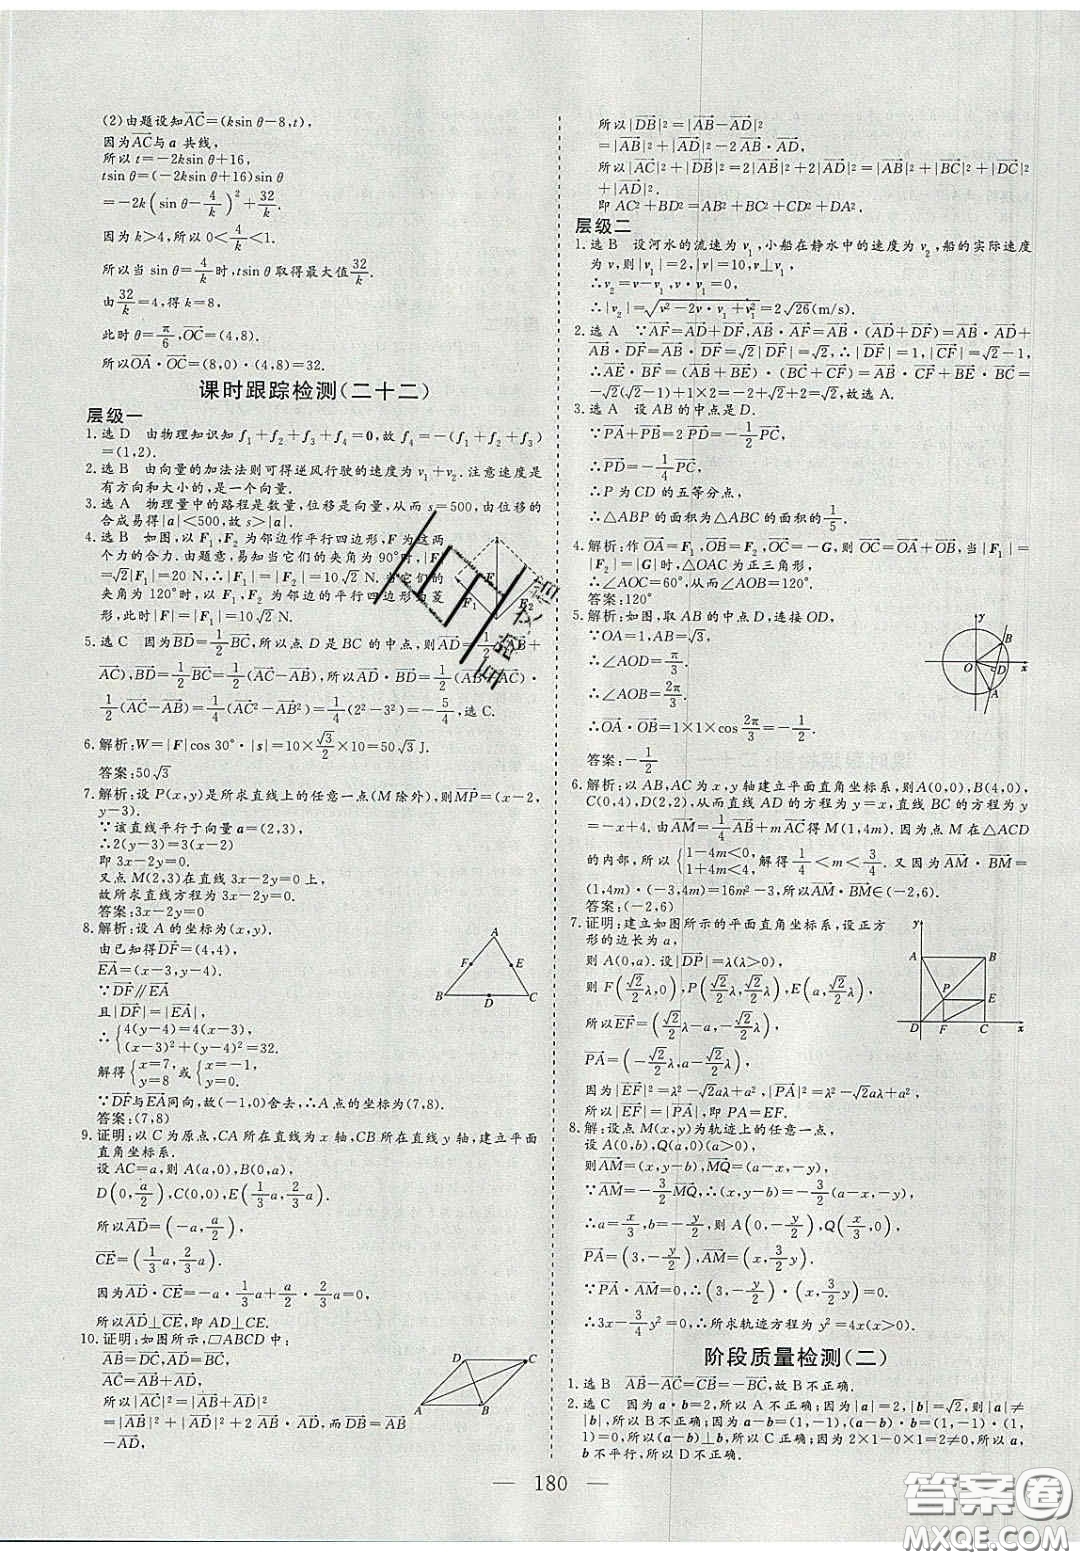 (2)由题设知AC=(ksin θ-8,t),
因为AC与a 共线,
所以 t=-2ksin θ+16,
tsin θ=(-2ksin θ+16)sin θ
=-2k(sin θ-4/k)²+32/k.
因为 k>4,所以 0<4/k<1.
所以当 sin θ=4/k时,tsin θ取得最大值32/k.
由32/k=4,得 k=8,
此时 θ=π/6,OC=(4,8).
所以OA·OC=(8,0)·(4,8)=32.
课时跟踪检测(二十二)
层级一
1.选 D 由物理知识知 f₁+f₂+f₃+f₄=0,故 f₄=-(f₁+f₂+f₃)
=(1,2).
2.选 B 由向量的加法法则可得逆风行驶的速度为 v₁+v₂.注意速度是
有方向和大小的,是一个向量.
3.选 A 物理量中的路程是数量,位移是向量,从而 s=500,由位移的
合成易得|a|<500,故 s>|a|.
4.选 B 如图,以 F₁,F₂ 为邻边作平行四边形,F为这两
个力的合力.由题意,易知当它们的夹角为 90°时,|F|
=√2|F₁|=20 N,|F₁|=|F₂|=10√2 N.当它们的
夹角为 120°时,以 F₁,F₂ 为邻边的平行四边形为菱
形,此时|F|=|F₁|=10√2 N.
F₁ F F₂
5.选 C 因为BD=1/2BC,所以点 D 是 BC 的中点,则AD=1/2(AB+
AC),BD=1/2BC=1/2(AC-AB),所以AD·BD=1/2(AB+AC)·
1/2(AC-AB)=1/4(AC²-AB²)=1/4(2²-3²)=-5/4,选 C.
6.解析:W=|F|cos 30°·|s|=10×√3/2×10=50√3 J.
答案:50√3
7.解析:设 P(x,y)是所求直线上的任意一点(M 除外),则MP=(x-2,
y-3).
∵该直线平行于向量 a=(2,3),
∴2(y-3)=3(x-2)
即 3x-2y=0.
又点 M(2,3)在直线 3x-2y=0 上,
故所求直线方程为 3x-2y=0.
答案:3x-2y=0
8.解析:设 A 的坐标为(x,y).
由已知得DF=(4,4),
EA=(x-3,y-4).
∵DF∥EA
且|DF|=|EA|,
∴{4(y-4)=4(x-3),
(x-3)²+(y-4)²=32.
解得{x=7, y=8 或{x=-1, y=0.
∵DF与EA同向,故(-1,0)舍去,∴A 点的坐标为(7,8).
答案:(7,8)
A F E B D C
9.证明:以 C 为原点,CA 所在直线为 x 轴,CB所在直线 y 轴,建立平面
直角坐标系.
设 AC=a,则 A(a,0),B(0,a),
D(0,a/2),C(0,0),E(1/3a,2/3a).
所以AD=(-a,a/2),
CE=(1/3a,2/3a),
因为AD·CE=-a·1/3a+a/2·2/3a=0,
所以AD⊥CE,即 AD⊥CE.
10.证明:如图所示,▱ABCD 中:
AB=DC,AD=BC,
AC=AB+AD,
所以|AC|²=|AB+AD|²
=|AB|²+|AD|²+2 AB·AD,而DB=AB
-AD,
D C A B
所以|DB|²=|AB-AD|²
=|AB|²+|AD|²-2 AB·AD,
所以|AC|²+|DB|²=2|AB|²+2|AD|²=|AB|²+|BC|²+|CD|²
+|AD|².
即 AC²+BD²=AB²+BC²+CD²+DA².
层级二
1.选 B 设河水的流速为 v₁,小船在静水中的速度为 v₂,船的实际速度
为 v,则|v₁|=2,|v|=10,v⊥v₁,
∴v₂=v-v₁,v·v₁=0,
∴|v₂|=√(v²-2v·v₁+v₁²)=2√26(m/s).
2.选 A ∵AF=AD+DF,AB·AF=AB·(AD+DF)=AB·AD+
AB·DF=AB·DF=√2|DF|=√2,∴|DF|=1,|CF|=√2-1,
∴AE·BF=(AB+BE)·(BC+CF)=AB·CF+BE·BC=
-√2(√2-1)+1×2=-2+√2+2=√2,故选 A.
3.选 A 设 AB 的中点是 D.
∵PA+PB=2 PD=-1/2PC,
∴PD=-1/4PC,
∴P 为 CD 的五等分点,
∴△ABP 的面积为△ABC 的面积的1/5.
4.解析:作OA=F₁,OB=F₂,OC=-G,则OC=OA+OB,当|F₁|=
|F₂|=|G|时,△OAC 为正三角形,
∴∠AOC=60°,从而∠AOB=120°.
答案:120°
5.解析:如图,取 AB 的中点 D,连接 OD,
∵OA=1,AB=√3,
∴∠AOD=π/3.
∴∠AOB=2π/3.
∴OA·OB=1×1×cos2π/3=-1/2.
答案:-1/2
y B O D x A
6.解析:以 AB,AC为 x,y轴建立平面直角坐标系,则A(0,0),B(4,0),
C(0,4),D(2,2),从而直线 AD 的方程为 y=x,直线 BC 的方程为 y
=-x+4.由AM=1/4AB+mAC得 M(1,4m).因为点 M 在△ACD
的内部,所以{1-4m<0, 1+4m<4,解得1/4<m<3/4.又因为AM·BM=
(1,4m)·(-3,4m)=16m²-3,所以AM·BM∈(-2,6).
答案:(-2,6)
7.证明:建立如图所示的平面直角坐标系,设正方
形的边长为 a,
则 A(0,a).设|DP|=λ(λ>0),
则 F(√2/2λ,0),P(√2/2λ,√2/2λ),E(a,√2/2λ),
所以EF=(√2/2λ-a,-√2/2λ),
PA=(-√2/2λ,a-√2/2λ),
因为|EF|²=λ²-√2aλ+a²,|PA|²=λ²-√2aλ+a²,
所以|EF|=|PA|,即 PA=EF.
y A B P E D F C x
8.解:设点 M(x,y)为轨迹上的任意一点,
设 A(0,b),Q(a,0)(a>0),
则AM=(x,y-b),MQ=(a-x,-y),
∵AM=-3/2MQ,∴(x,y-b)=-3/2(a-x,-y),
∴a=x/3,b=-y/2,则 A(0,-y/2),Q(x/3,0),
PA=(3,-y/2),AM=(x,3/2y).
∵PA·AM=0,∴(3,-y/2)·(x,3/2y)=0,
∴3x-3/4y²=0,∴所求轨迹方程为 y²=4x(x>0).
阶段质量检测(二)
1.选 B AB-AC=CB=-BC,故 B 不正确.
2.选 C 因为 a·b=2,所以 A 不正确;因为|a|=2,|b|=√2,则|a|≠
|b|,所以 B 不正确;因为 a-b=(1,-1),(a-b)·b=(1,-1)·(1,
1)=0,所以(a-b)⊥b,所以 C 正确;因为 2×1-0×1=2≠0,所以 a,
b 不平行,所以 D 不正确.
180
答案圈
MXQE.COM